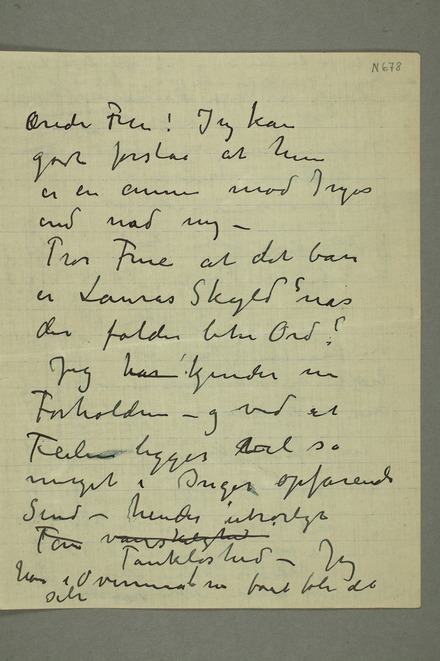 N 678
Ærede Frue! Jeg kan
godt forstaa at hun
er en annen mod Inga
end mod mig –
Tror Frue at det bare
er Lauras Skyld naar
der falder lidt Ord?
Jeg har kjender nu
Forholdene – og ved at
Feilen ligger vel så
meget i Ingas opfarende
Sind – hendes utrolige
Tankløshed – Jeg
har i Sommer
selv